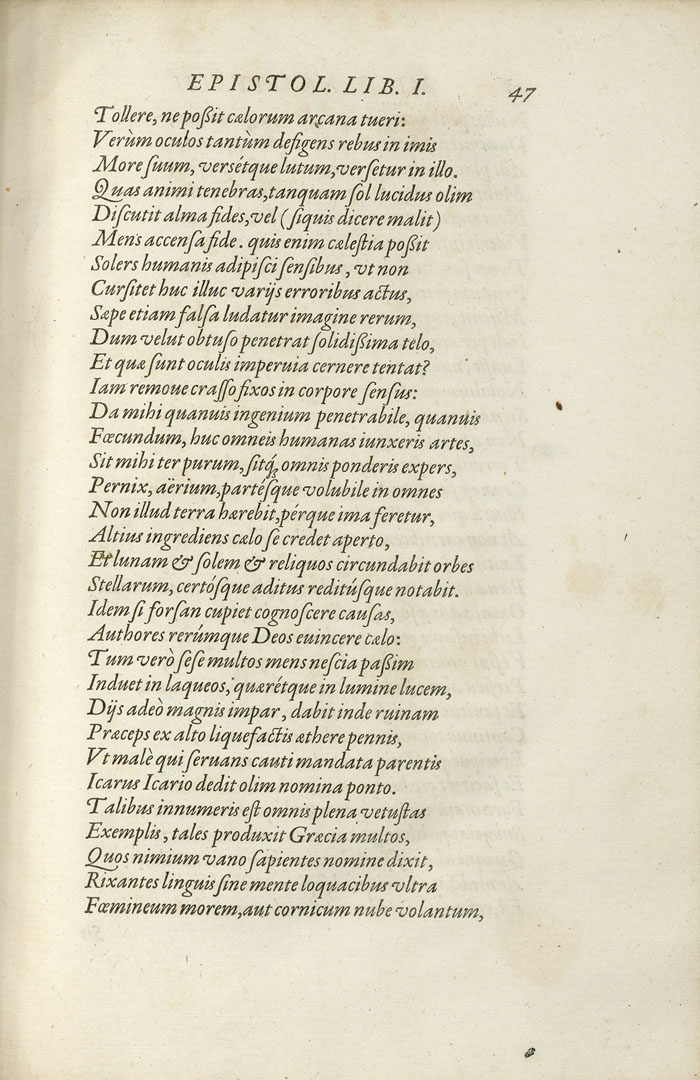 EPISTOL. LIB. I. 47
Tollere, ne poßit cælorum arcana tueri:
Verùm oculos tantùm defigens rebus in imis
More ſuum, verſétque lutum, verſetur in illo.
Quas animi tenebras, tanquam ſol lucidus olim
Diſcutit alma fides, vel (ſiquis dicere malit)
Mens accenſa fide. quis enim cæleſtia poßit
Solers humanis adipiſci ſenſibus, vt non
Curſitet huc illuc varijs erroribus actus,
Sæpe etiam falſa ludatur imagine rerum,
Dum velut obtuſo penetrat ſolidißima telo,
Et quæ ſunt oculis imperuia cernere tentat?
Iam remoue craſſo fixos in corpore ſenſus:
Da mihi quanuis ingenium penetrabile, quanuis
Fœcundum, huc omneis humanas iunxeris artes,
Sit mihi ter purum, ſitq́; omnis ponderis expers,
Pernix, aërium, partéſque volubile in omnes
Non illud terra hærebit, pérque ima feretur,
Altius ingrediens cælo ſe credet aperto,
Et lunam & ſolem & reliquos circundabit orbes
Stellarum, certóſque aditus reditúſque notabit.
Idem ſi forſan cupiet cognoſcere cauſas,
Authores rerúmque Deos euincere cælo:
Tum verò ſeſe multos mens neſcia paßim
Induet in laqueos, quærétque in lumine lucem,
Dijs adeò magnis impar, dabit inde ruinam
Præceps ex alto liquefactis æthere pennis,
Vt malè qui ſeruans cauti mandata parentis
Icarus Icario dedit olim nomina ponto.
Talibus innumeris eſt omnis plena vetuſtas
Exemplis, tales produxit Græcia multos,
Quos nimium vano ſapientes nomine dixit,
Rixantes linguis ſine mente loquacibus vltra
Fœmineum morem, aut cornicum nube volantum,